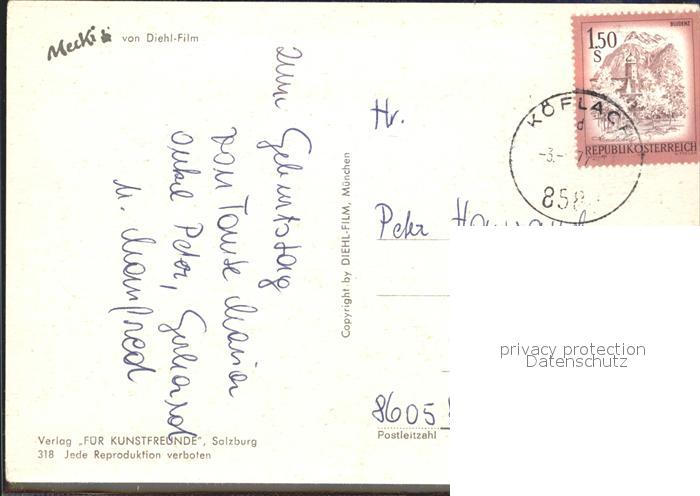 Mecki von Diehl-Film
zum Geburtstag
von Tante Maria
onkel Peter, Gerhard
u. Manfred
Verlag „FÜR KUNSTFREUNDE", Salzburg
318 Jede Reproduktion verboten
Copyright by DIEHL-FILM, München
BLUDENZ
1.50
S
REPUBLIK ÖSTERREICH
KÖFLACH
-3.-
858
Hr.
Peter
8605
Postleitzahl
privacy protection
Datenschutz